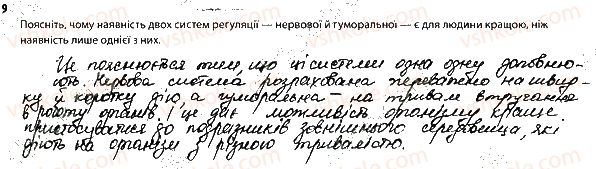 9
Поясніть, чому наявність двох систем регуляції — нервової й гуморальної — є для людини кращою, ніж
наявність лише однієї з них.
Це пояснюється тим, що ці системи одна одну доповню-
ють. Нервова система розрахована переважно на швид-
ку й коротку дію, а гуморальна – на тривале втручання
в роботу органів. І це дає можливість організму краще
пристосуватися до подразників зовнішнього середовища, які
діють на організм з різною тривалістю.